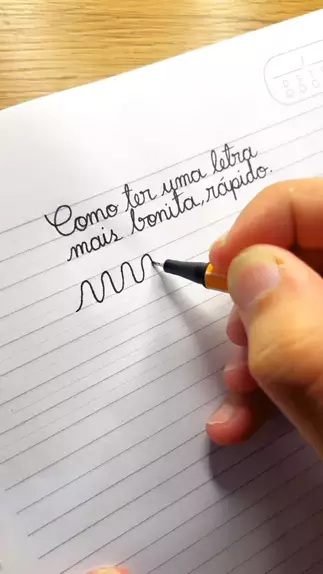 Como ter uma letra
mais bonita, rápido.